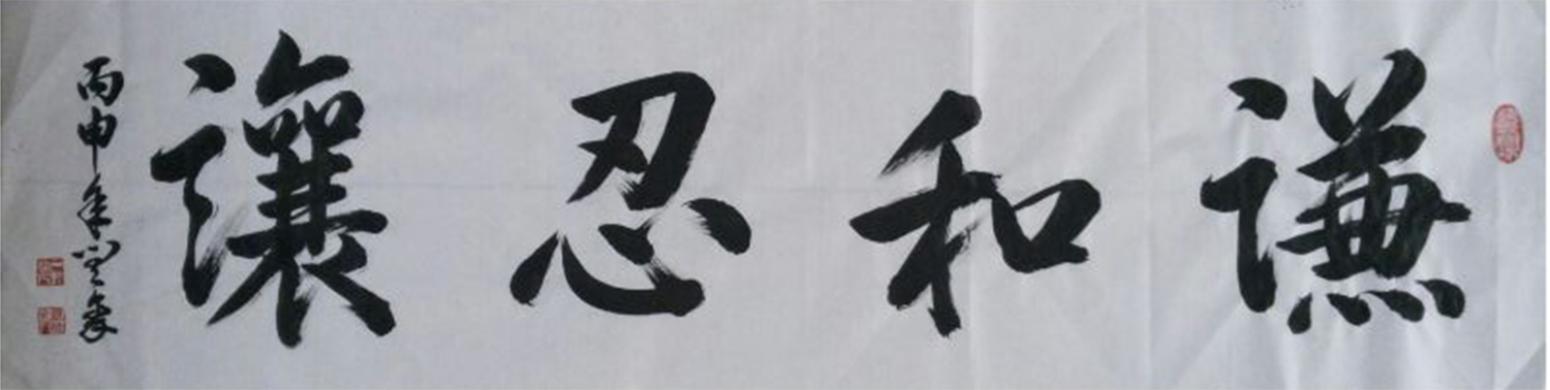 謙和忍讓
丙申年